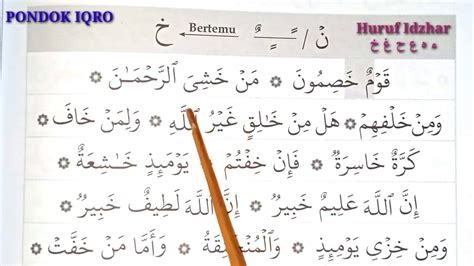 PONDOK IQRO
Huruf Idzhar
ه ء ع ح غ خ
نْ / ـًـ ـٍـ ـٌـ Bertemu خ
قَوْمٌ خَصِمُونَ ۞ مَنْ خَشِيَ الرَّحْمَـٰنَ
وَمِنْ خَلْفِهِمْ ۞ هَلْ مِنْ خَالِقٍ غَيْرُ اللَّهِ ۞ وَلِمَنْ خَافَ ۞
كَرَّةٌ خَاسِرَةٌ ۞ فَإِنْ خِفْتُمْ ۞ يَوْمَئِذٍ خَـٰشِعَةٌ ۞
إِنَّ اللَّهَ عَلِيمٌ خَبِيرٌ ۞ إِنَّ اللَّهَ لَطِيفٌ خَبِيرٌ ۞
وَمِنْ خِزْيِ يَوْمِئِذٍ ۞ وَالْمُنْخَنِقَةُ ۞ وَأَمَّا مَنْ خَفَّتْ ۞